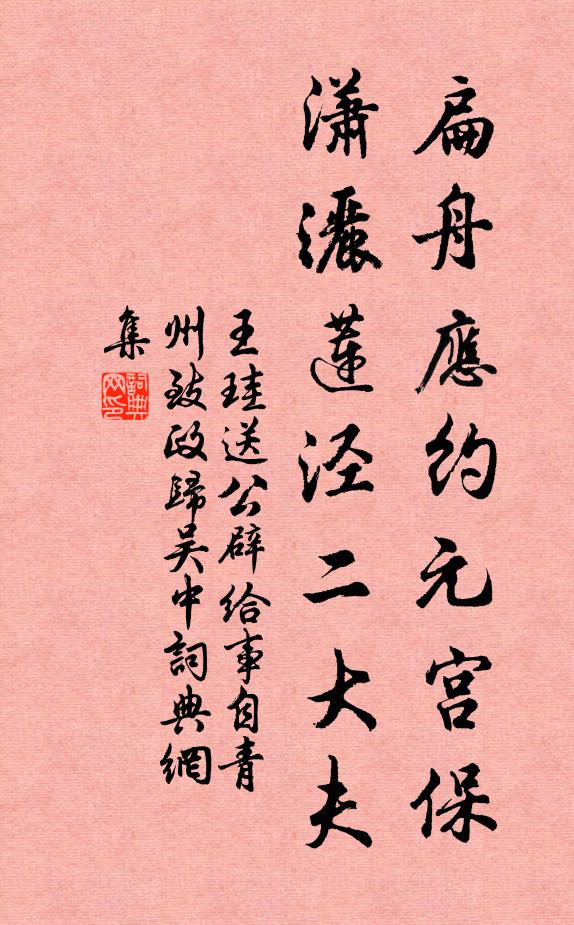 扁舟應約元宮保
瀟灑蓮涇二大夫
王珪送公辟給事自青
州致政歸吴中詞典網
集
詞典
网印